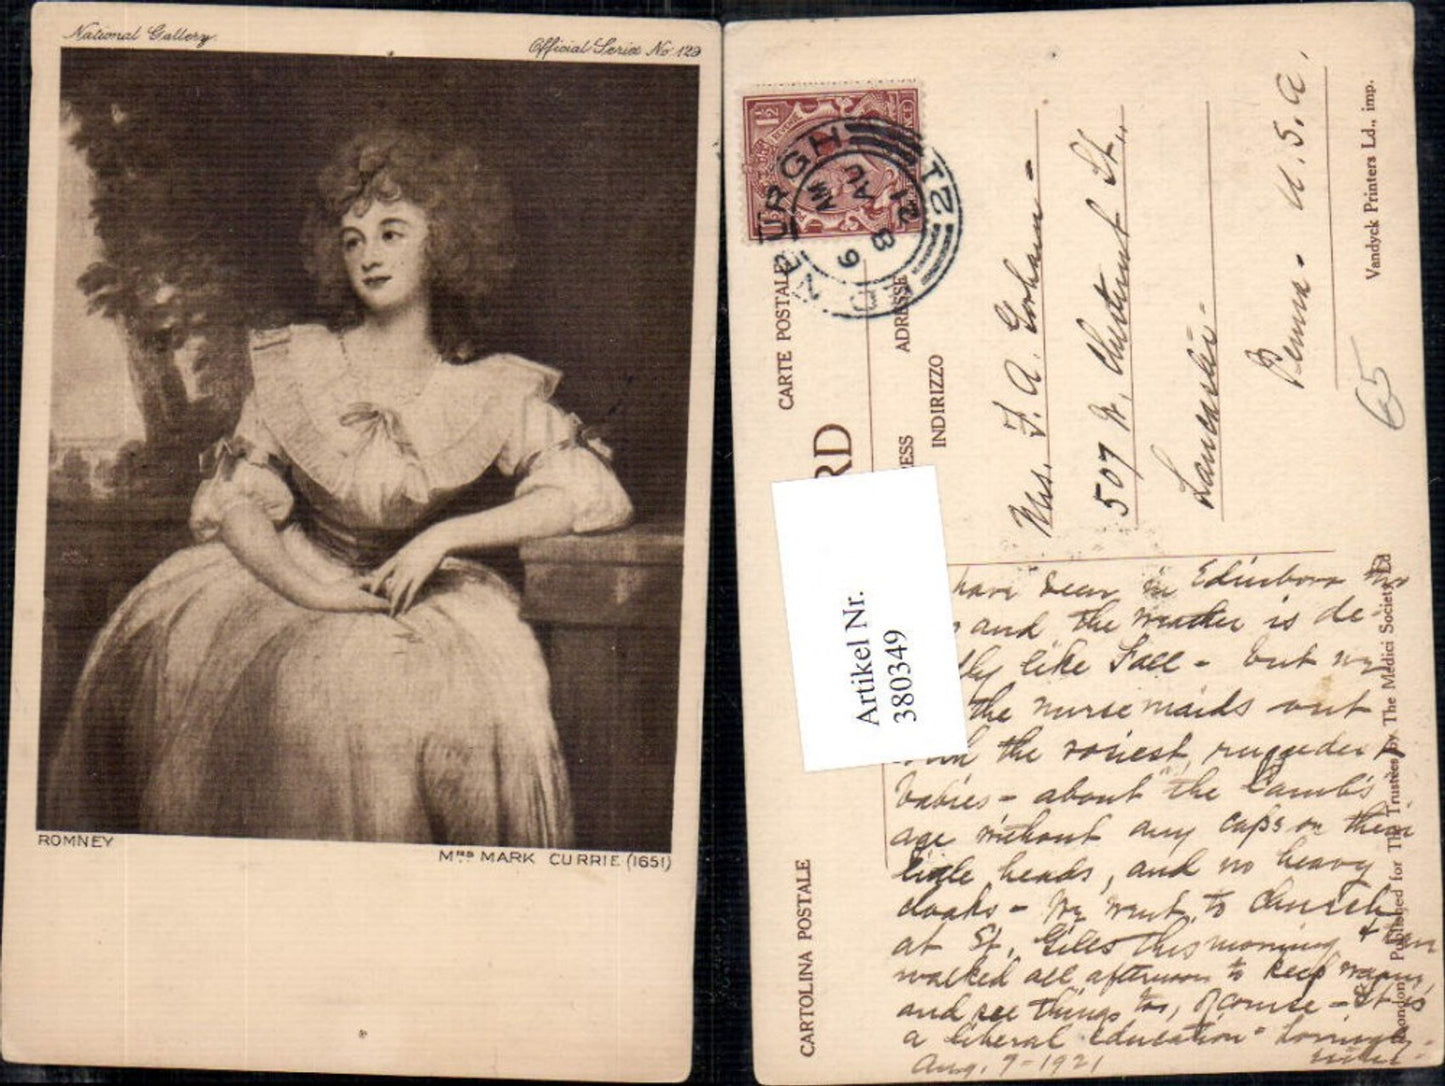 National Gallery.
Official Series No. 129
ROMNEY
MRS MARK CURRIE (1651)
1½
EDINBURGH
AM
8 AU
21
CARTE POSTALE
ADRESSE
INDIRIZZO
RD
RESS
CARTOLINA POSTALE
Artikel Nr.
380349
Mrs. F. A. Gorham -
507 N. Chestnut St.,
Lancaster -
Penna - U.S.A.
65
Vandyck Printers Ld., imp.
London: Published for The Trustees by The Medici Society Ld
have been in Edinboro
and the weather is de-
like Fall - but
the nurse maids out
the rosiest, ruggedest
babies - about the Lamb's
age without any caps on their
little heads, and no heavy
cloaks - We went to church
at St. Giles this morning +
walked all afternoon to keep warm,
and see things too, of course - It is
a liberal education - Lovingly
Aug. 7 - 1921